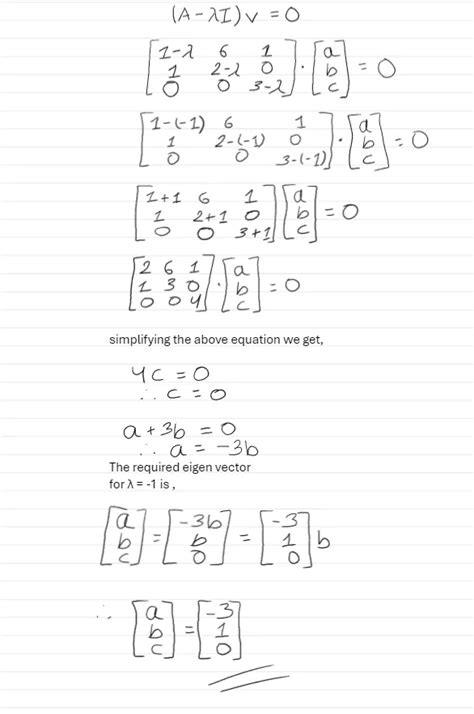 (A - λI) v = 0
[1-λ 6 1
1 2-λ 0
0 0 3-λ] · [a
b
c] = 0
[1-(-1) 6 1
1 2-(-1) 0
0 0 3-(-1)] · [a
b
c] = 0
[1+1 6 1
1 2+1 0
0 0 3+1] [a
b
c] = 0
[2 6 1
1 3 0
0 0 4] · [a
b
c] = 0
simplifying the above equation we get,
4c = 0
∴ c = 0
a + 3b = 0
∴ a = -3b
The required eigen vector
for λ = -1 is ,
[a
b
c] = [-3b
b
0] = [-3
1
0] b
∴ [a
b
c] = [-3
1
0]